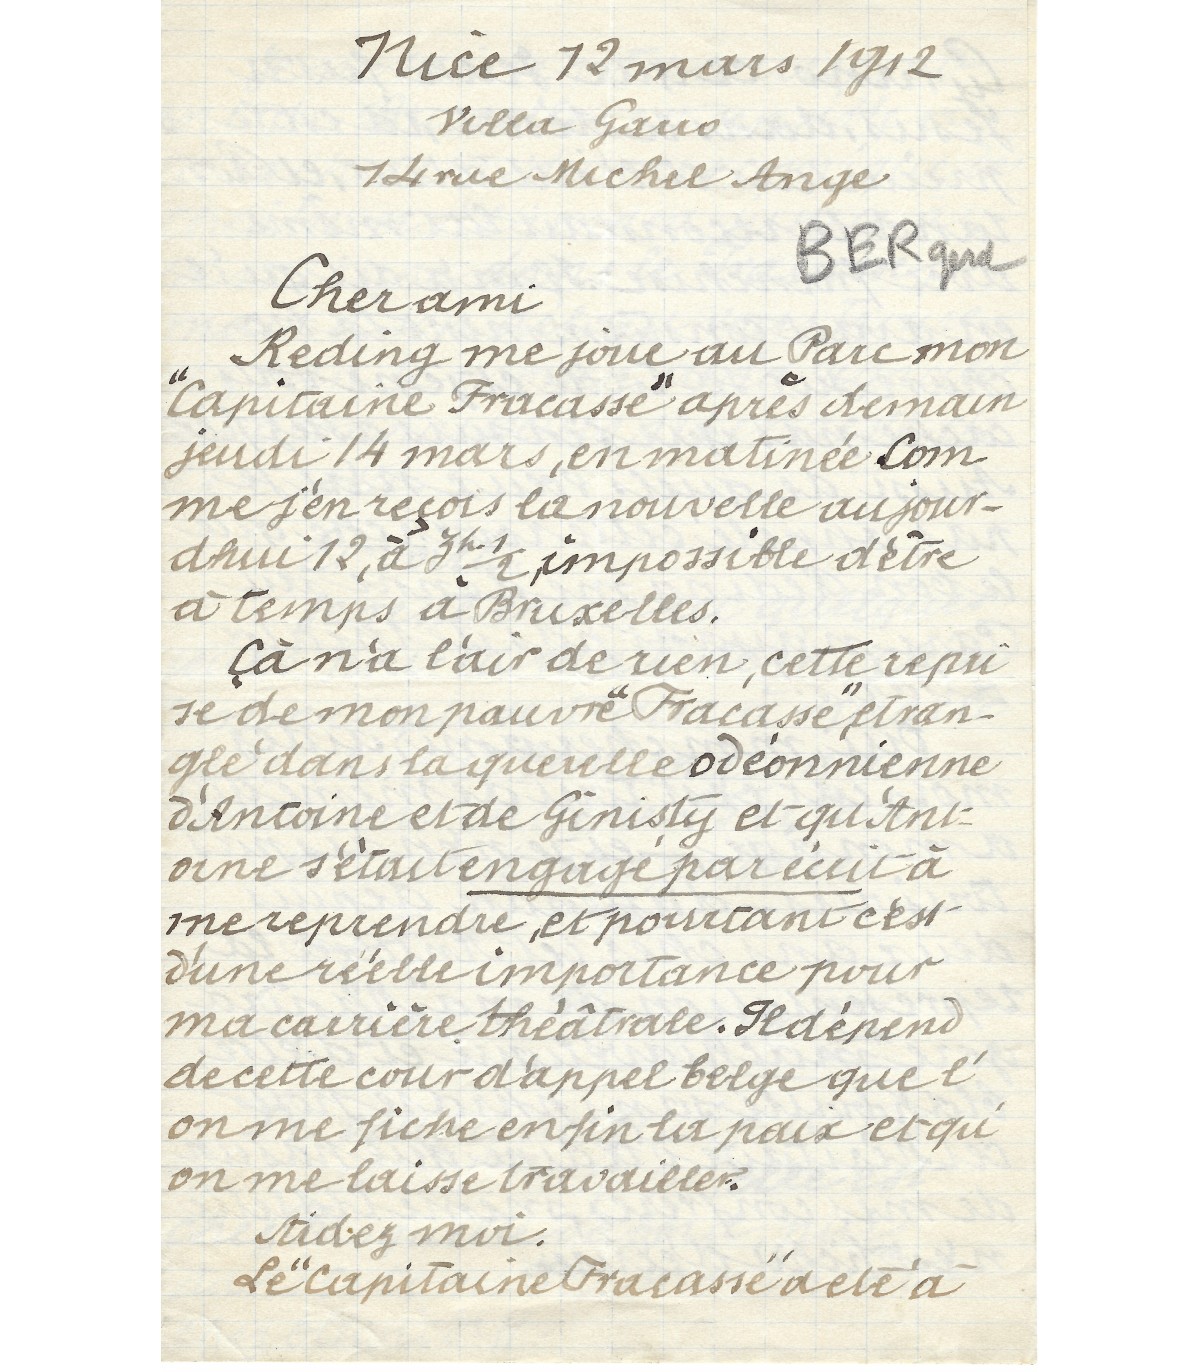 Nice 12 mars 1912
Villa Garro
14 rue Michel Ange
BERgerd
Cher ami
Reding me joue au Parc mon
"Capitaine Fracasse" après demain
jeudi 14 mars, en matinée Com
me j'en reçois la nouvelle aujour-
d'hui 12, à 3h. 1/2, impossible d'être
à temps à Bruxelles.
Çà n'a l'air de rien, cette repri
se de mon pauvre "Fracasse", étran-
glé dans la querelle odéonnienne
d'Antoine et de Ginisty et qu'Ant-
oine s'était engagé par écrit à
me reprendre, et pourtant c'est
d'une réelle importance pour
ma carrière théâtrale. Il dépend
de cette cour d'appel belge que l'
on me fiche enfin la paix et qu'
on me laisse travailler.
Aidez moi.
Le "Capitaine Fracasse" a été à